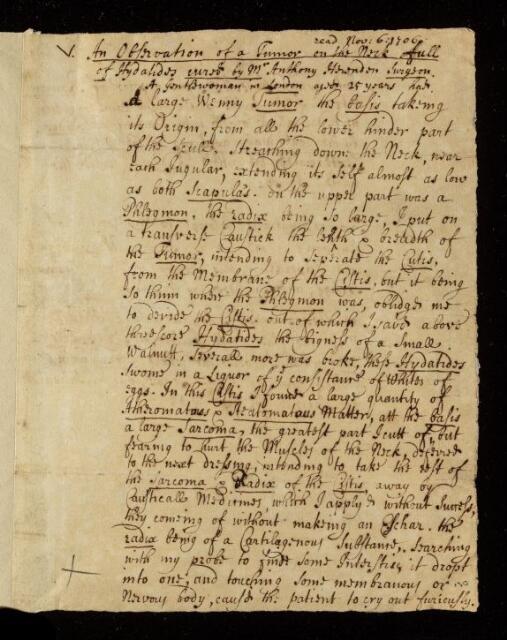 read Nov: 6: 1706
V. An Observation of a Tumor on the Neck full
of Hydatides cured by Mr Anthony Herendon Surgeon.
A Gentlewoman in London aged 25 years had
A large Wenny Tumor the basis takeing
its Origin, from all the lower hinder part
of the Scull, Streaching down the Neck, near
each Jugular, extending its self almost as low
as both Scapula's. On the upper part was a
Phlegmon, the radix being so large, I put on
a transverse Caustick the lenth & breadth of
the Tumor, intending to seperate the Cutis,
from the Membrane of the Cistis, but it being
so thinn where the Phlegmon was, obliged me
to devide the Cistis, out of which I save above
threescore Hydatides the bigness of a Small
Walnutt, Severall more was broke, these Hydatides
Swome in a Liquor of ye consistance of Whites of
eggs. In this Cistis I found a large quantity of
Atheromatous & Steatomatous Matter, att the basis
a large Sarcoma, the greatest part I cutt of, but
fearing to hurt the Muscles of the Neck, deferred
to the next dressing; intending to take the rest of
the Sarcoma & Radix of the Cistis away by
Causticall Medicines, which I apply'd without Success,
they comeing of without makeing an Eschar. the
radix being of a Cartilagenous Substance, searching
with my probe to finde some Interstis, it dropt
into one, and touching some membranous or
Nervous body, cause the patient to cry out furiously.